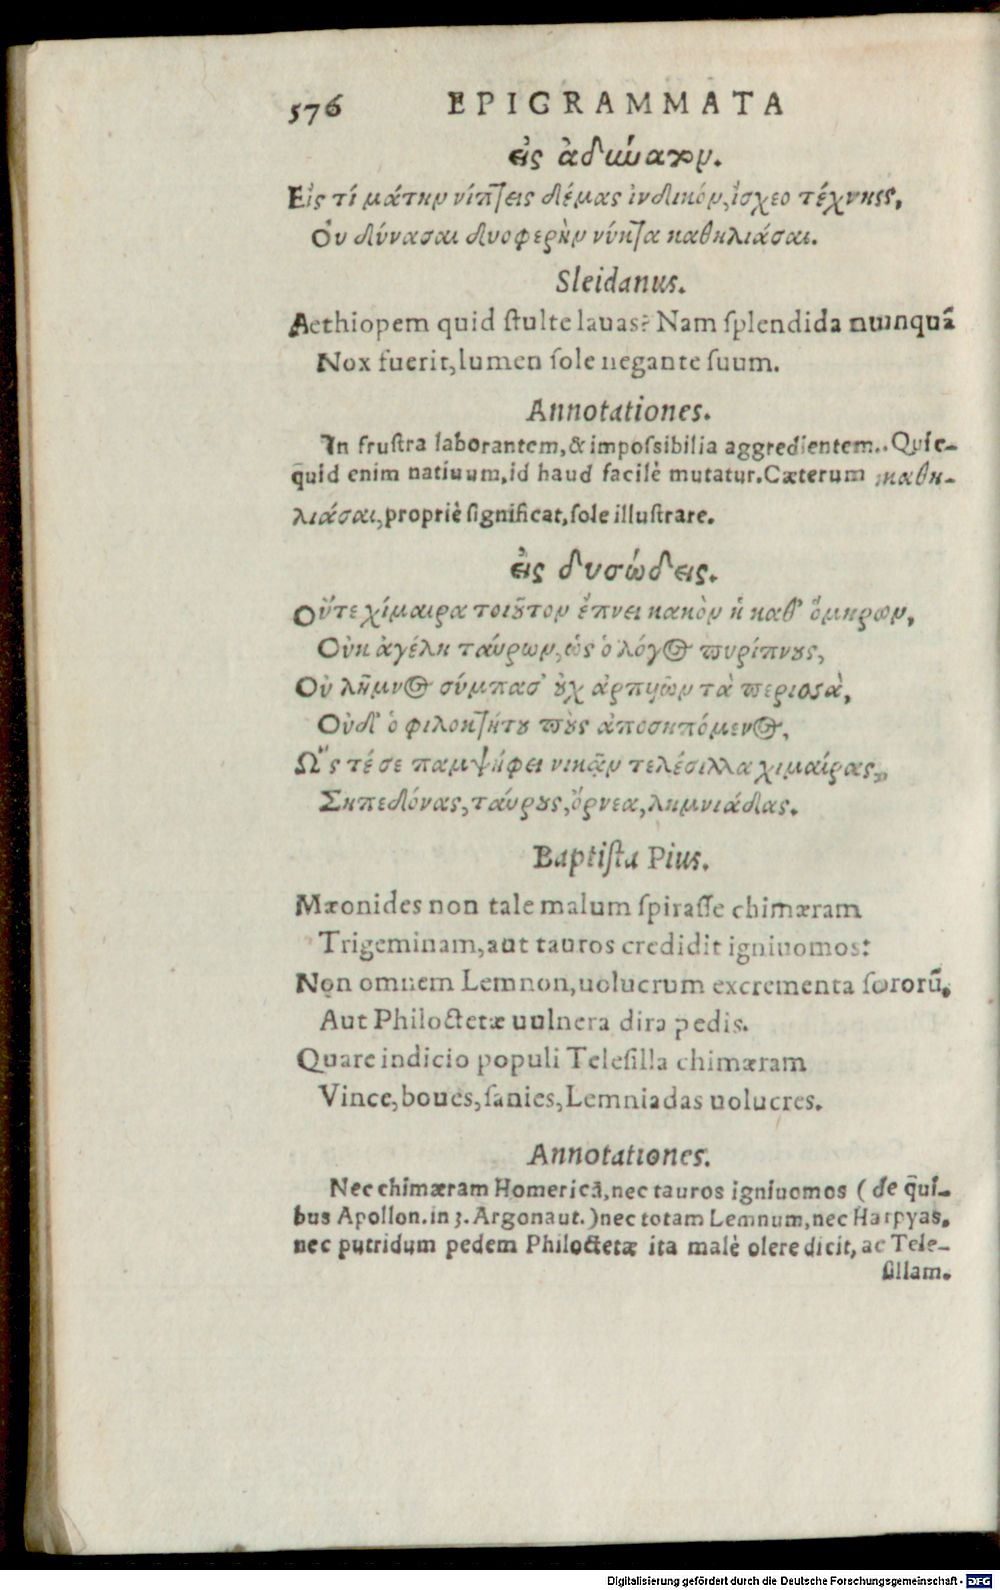 576 EPIGRAMMATA
εἰς ἀδύνατον.
Εἰς τί μάτην νίπτεις δέμας ἰνδικόν, ἴσχεο τέχνης,
Οὐ δύνασαι δνοφερὴν νύκτα καθηλιάσαι.
Sleidanus.
Aethiopem quid ſtulte lauas? Nam ſplendida nunquā
Nox fuerit, lumen ſole negante ſuum.
Annotationes.
In fruſtra laborantem, & impoſsibilia aggredientem.. Quic-
quid enim natiuum, id haud facilè mutatur. Cæterum καθη-
λιάσαι, propriè ſignificat, ſole illuſtrare.
εἰς δυσώδεις.
Οὔτε χίμαιρα τοιοῦτον ἔπνει κακὸν ἡ καθ' ὅμηρον,
Οὐκ ἀγέλη ταύρων, ὡς ὁ λόγος πυρίπνους,
Οὐ λῆμνος σύμπασ' οὐχ ἁρπυιῶν τὰ περισσὰ,
Οὐδ' ὁ φιλοκτήτου ποὺς ἀποσηπόμενος,
Ὥς τέ σε παμψήφει νικᾷν τελέσιλλα χιμαίρας,
Σηπεδόνας, ταύρους, ὄρνεα, λημνιάδας.
Baptiſta Pius.
Mæonides non tale malum ſpiraſſe chimæram
Trigeminam, aut tauros credidit igniuomos:
Non omnem Lemnon, uolucrum excrementa ſororū,
Aut Philoctetæ uulnera dira pedis.
Quare indicio populi Teleſilla chimæram
Vince, boues, ſanies, Lemniadas uolucres.
Annotationes.
Nec chimæram Homericā, nec tauros igniuomos (de qui-
bus Apollon. in 3. Argonaut.) nec totam Lemnum, nec Harpyas,
nec putridum pedem Philoctetæ ita malè olere dicit, ac Tele-
ſillam.
Digitalisierung gefördert durch die Deutsche Forschungsgemeinschaft - DFG